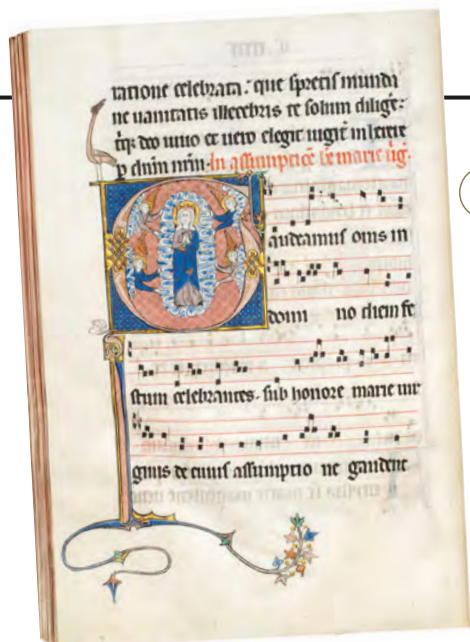 tatione celebrata. que spretis mundi
ne uanitatis illecebris te solum dilige
tq; deo uiuo et uero elegit iugit inherere
p dnm nrm. In assumptioē be marie ūg.
audeamus oms in
domino diem fe
stum celebrantes. sub honore marie uir
ginis de cuius assumptio ne gaudent